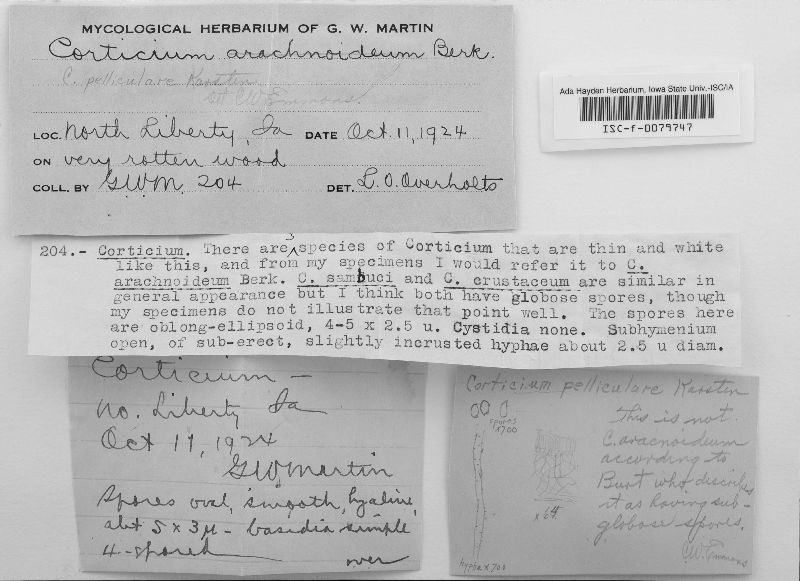 MYCOLOGICAL HERBARIUM OF G. W. MARTIN
Corticium arachnoideum Berk.
C. pelliculare Karsten
det CW Emmons.
LOC. North Liberty, Ia DATE Oct. 11, 1924
ON very rotten wood
COLL. BY GWM 204 DET. L. O. Overholts
Ada Hayden Herbarium, Iowa State Univ.-ISC/IA
ISC-f-0079747
204.- Corticium. There are 3 species of Corticium that are thin and white
like this, and from my specimens I would refer it to C.
arachnoideum Berk. C. sambuci and C. crustaceum are similar in
general appearance but I think both have globose spores, though
my specimens do not illustrate that point well. The spores here
are oblong-ellipsoid, 4-5 x 2.5 u. Cystidia none. Subhymenium
open, of sub-erect, slightly incrusted hyphae about 2.5 u diam.
Corticium —
No. Liberty Ia
Oct 11, 1924
GWMartin
Spores oval, smooth, hyaline,
abt 5 x 3 µ - basidia simple
4-spored
over
Corticium pelliculare Karsten
spores
x700
x64
hypha x 700
This is not
C. aracnoideum
according to
Burt who describes
it as having sub-
globose spores.
CW. Emmons